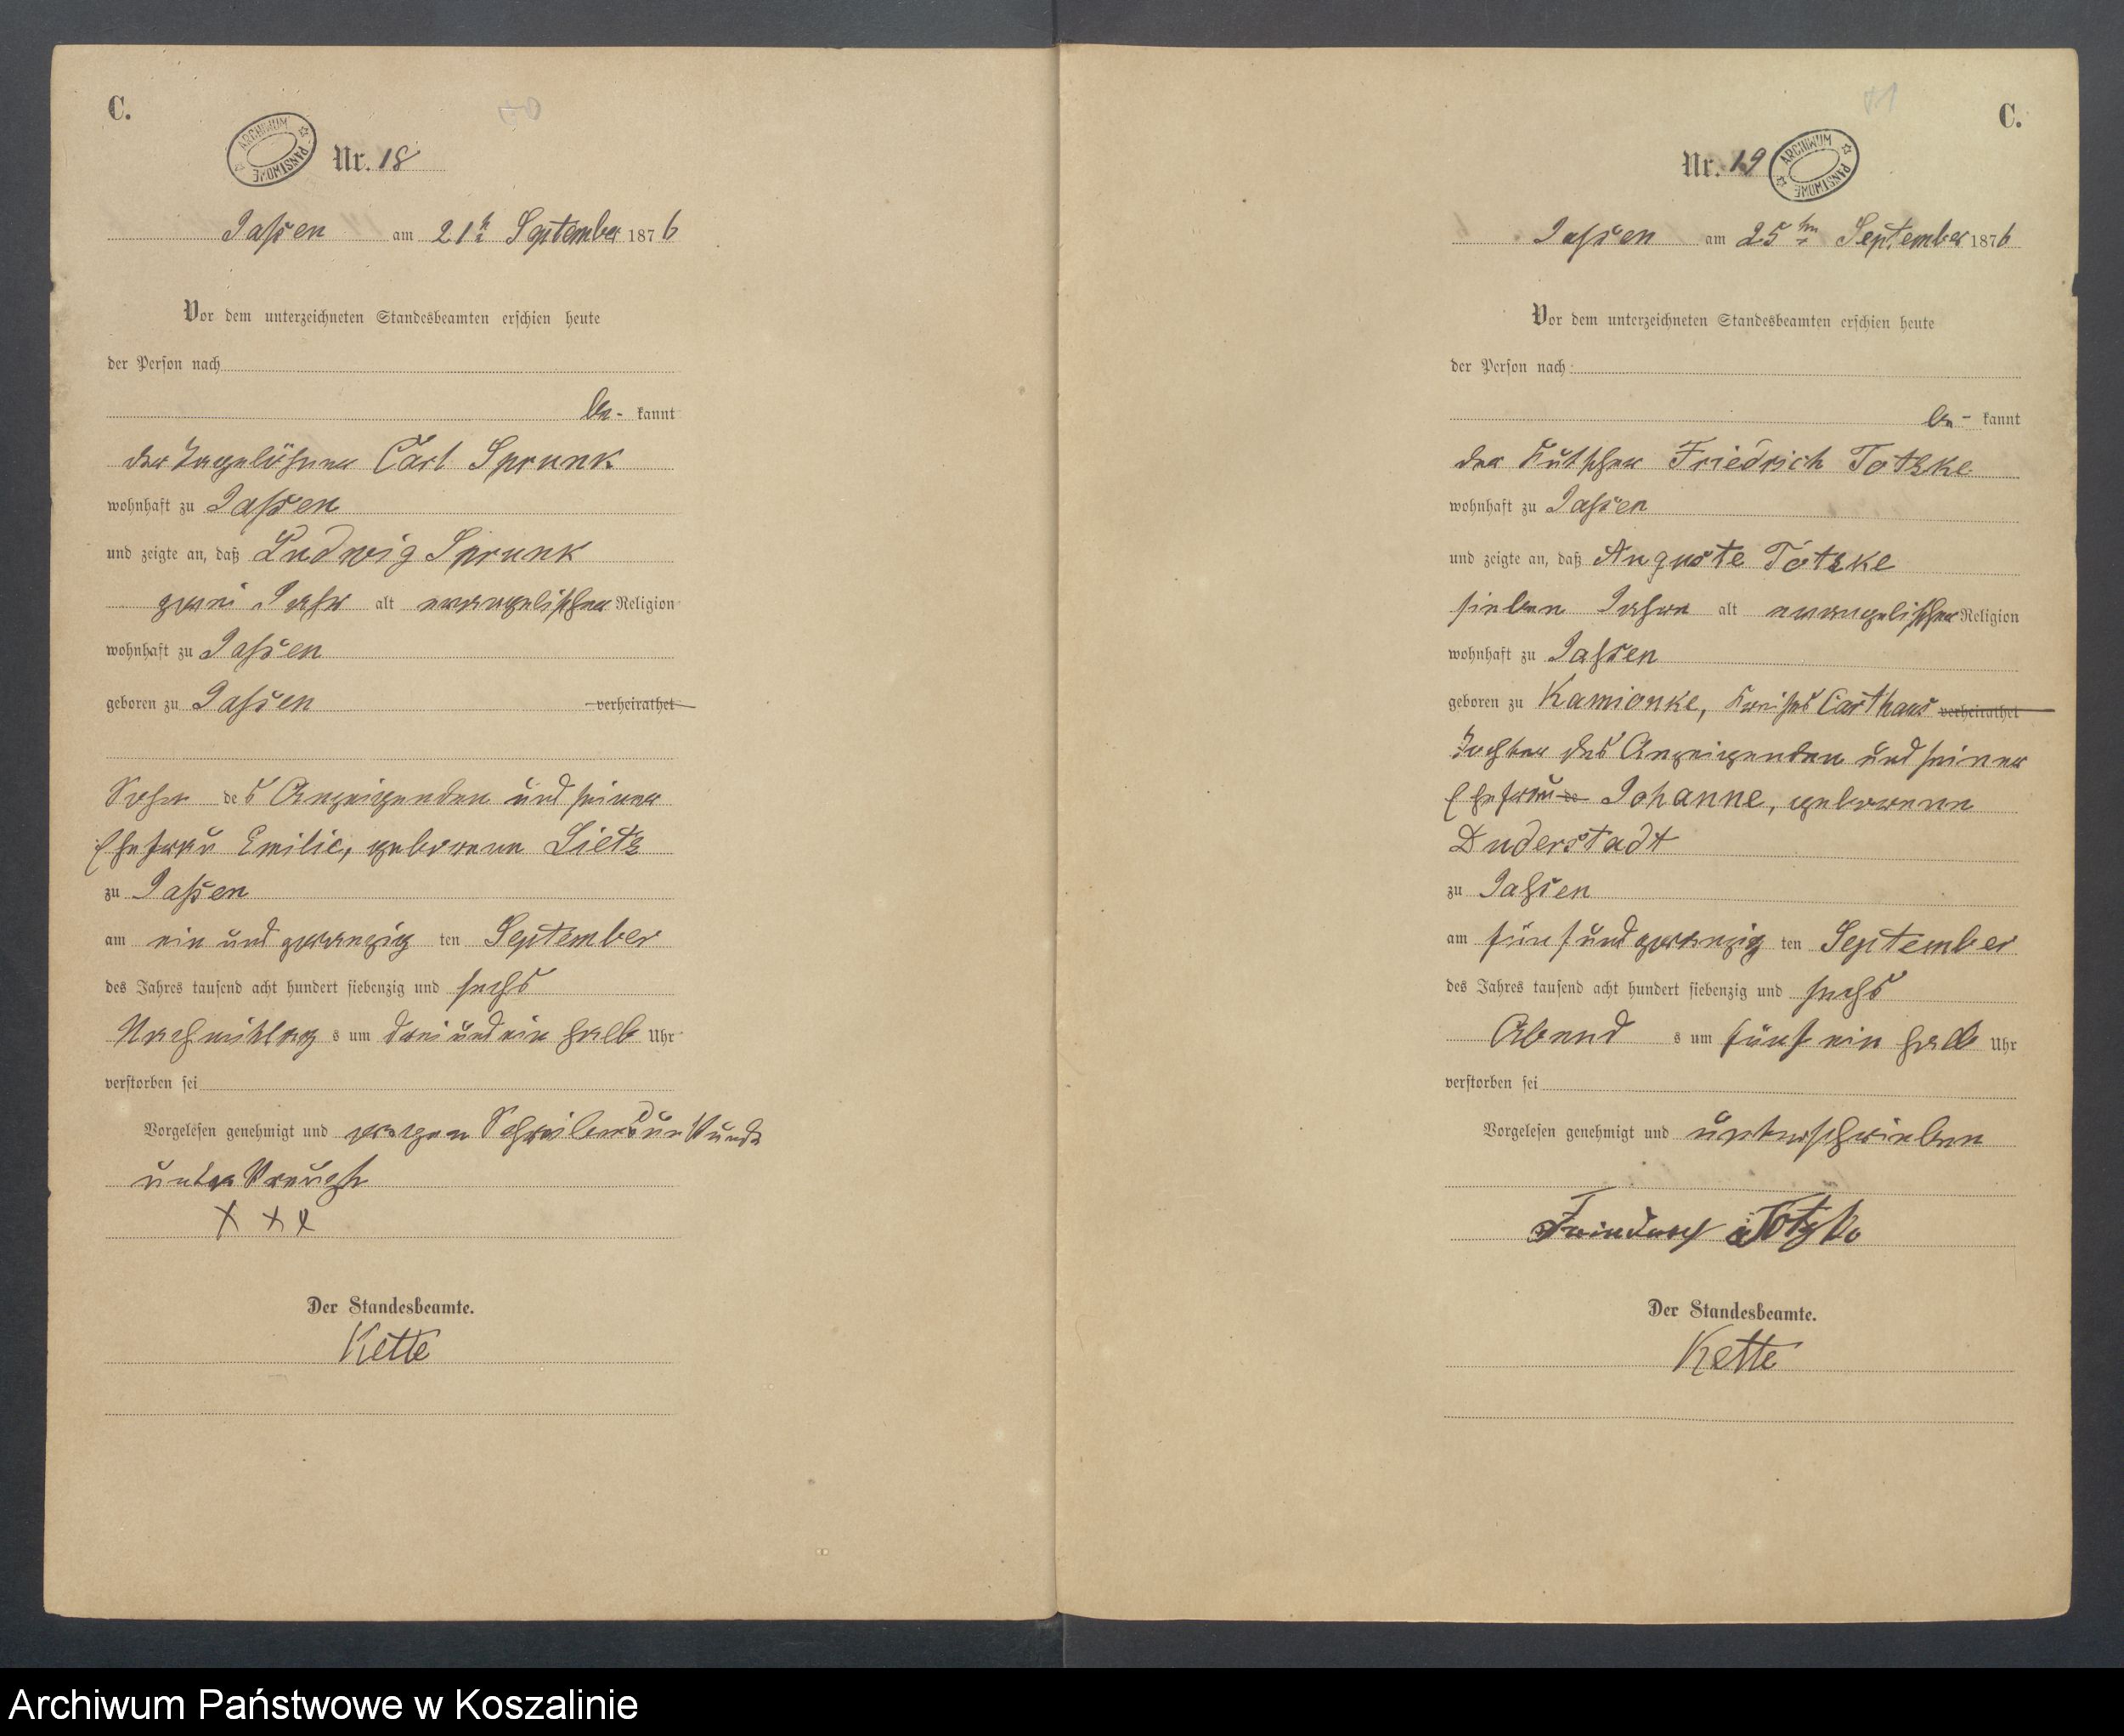 C.
ARCHIWUM PAŃSTWOWE
Nr. 18
Jassen am 21t September 1876
Vor dem unterzeichneten Standesbeamten erschien heute
der Person nach
be- kannt
der Tagelöhner Carl Sprunk
wohnhaft zu Jassen
und zeigte an, daß Ludwig Sprunk
zwei Jahr alt evangelischer Religion
wohnhaft zu Jassen
geboren zu Jassen verheirathet
Sohn des Anzeigenden und seiner
Ehefrau Emilie, geborene Lietz
zu Jassen
am ein und zwanzig ten September
des Jahres tausend acht hundert siebenzig und sechs
Nachmittag s um drei und ein halb Uhr
verstorben sei
Vorgelesen genehmigt und wegen Schreibens
unter
X X X
Der Standesbeamte.
Kette
C.
Nr. 19
ARCHIWUM PAŃSTWOWE
Jassen am 25ten September 1876
Vor dem unterzeichneten Standesbeamten erschien heute
der Person nach
be- kannt
der Kutscher Friedrich Totzke
wohnhaft zu Jassen
und zeigte an, daß Auguste Totzke
sieben Jahre alt evangelischer Religion
wohnhaft zu Jassen
geboren zu Kamionke, Kreises Carthaus verheirathet
Tochter des Anzeigenden und seiner
Ehefrau de Johanne, geborene
Duderstadt
zu Jassen
am fünf und zwanzig ten September
des Jahres tausend acht hundert siebenzig und sechs
Abend s um fünf ein halb Uhr
verstorben sei
Vorgelesen genehmigt und unterschrieben
Friedrich Totzke
Der Standesbeamte.
Kette
Archiwum Państwowe w Koszalinie